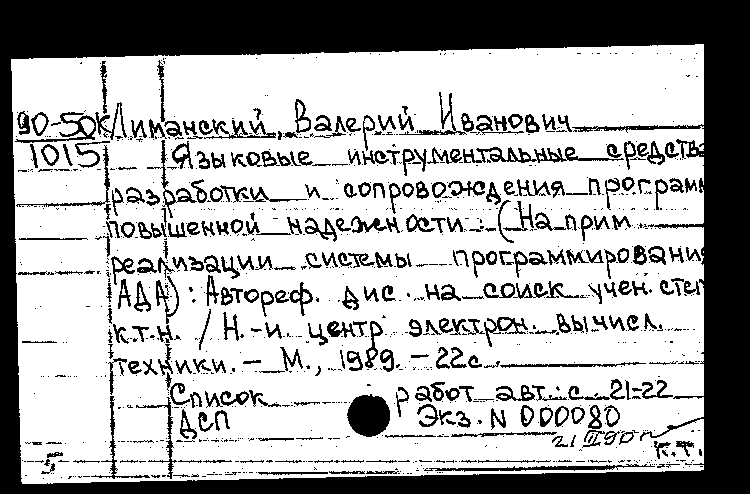 90-50к Лиманский, Валерий Иванович
1015 Языковые инструментальные средства
разработки и сопровождения программ
повышенной надежности: (На прим
реализации системы программирования
АДА): Автореф. дис. на соиск учен. степ
к.т.н. / Н.-и. центр электрон. вычисл.
техники. – М., 1989. – 22с.
Список работ авт.: с. 21-22
ДСП Экз. N 000080
к.т.
5